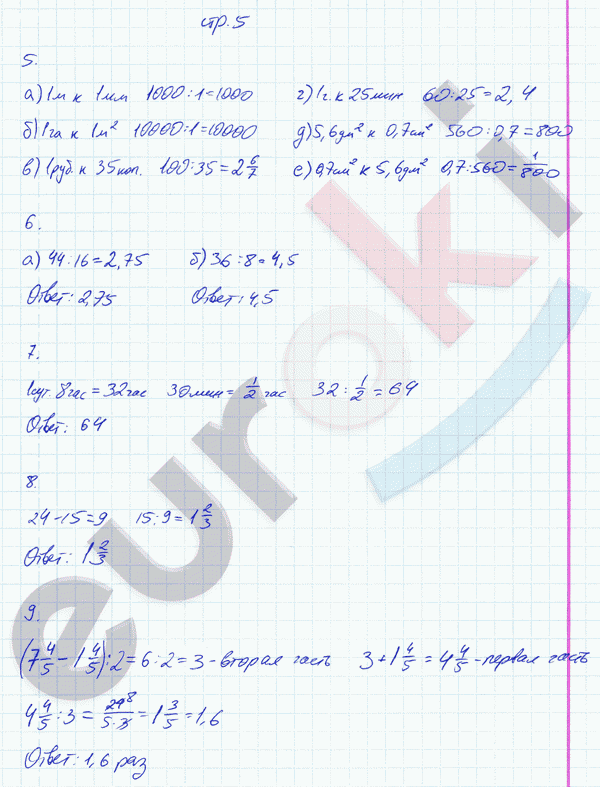 стр. 5
5.
а) 1м к 1мм 1000 : 1 = 1000
г) 1г. к 25 мин 60 : 25 = 2,4
б) 1га к 1м² 10000 : 1 = 10000
д) 5,6дм² к 0,7см² 560 : 0,7 = 800
в) 1руб. к 35коп. 100 : 35 = 2 6/7
е) 0,7см² к 5,6дм² 0,7 : 560 = 1/800
6.
а) 44 : 16 = 2,75
б) 36 : 8 = 4,5
Ответ: 2,75
Ответ: 4,5
7.
1сут. 8час = 32час 30мин = 1/2 час 32 : 1/2 = 64
Ответ: 64
8.
24 - 15 = 9 15 : 9 = 1 2/3
Ответ: 1 2/3
9.
(7 4/5 - 1 4/5) : 2 = 6 : 2 = 3 - вторая часть 3 + 1 4/5 = 4 4/5 - первая часть
4 4/5 : 3 = 24 8/5·3 = 1 3/5 = 1,6
Ответ: 1,6 раз
euroki